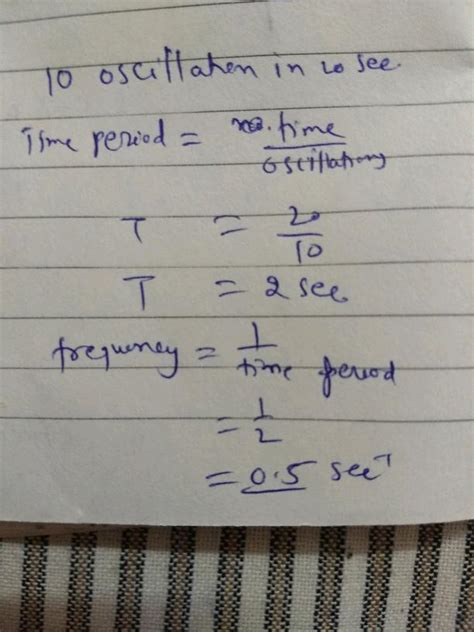 10 oscillation in 20 sec.
Time period = time / oscillations
T = 20 / 10
T = 2 sec
frequency = 1 / time period
= 1 / 2
= 0.5 sec⁻¹